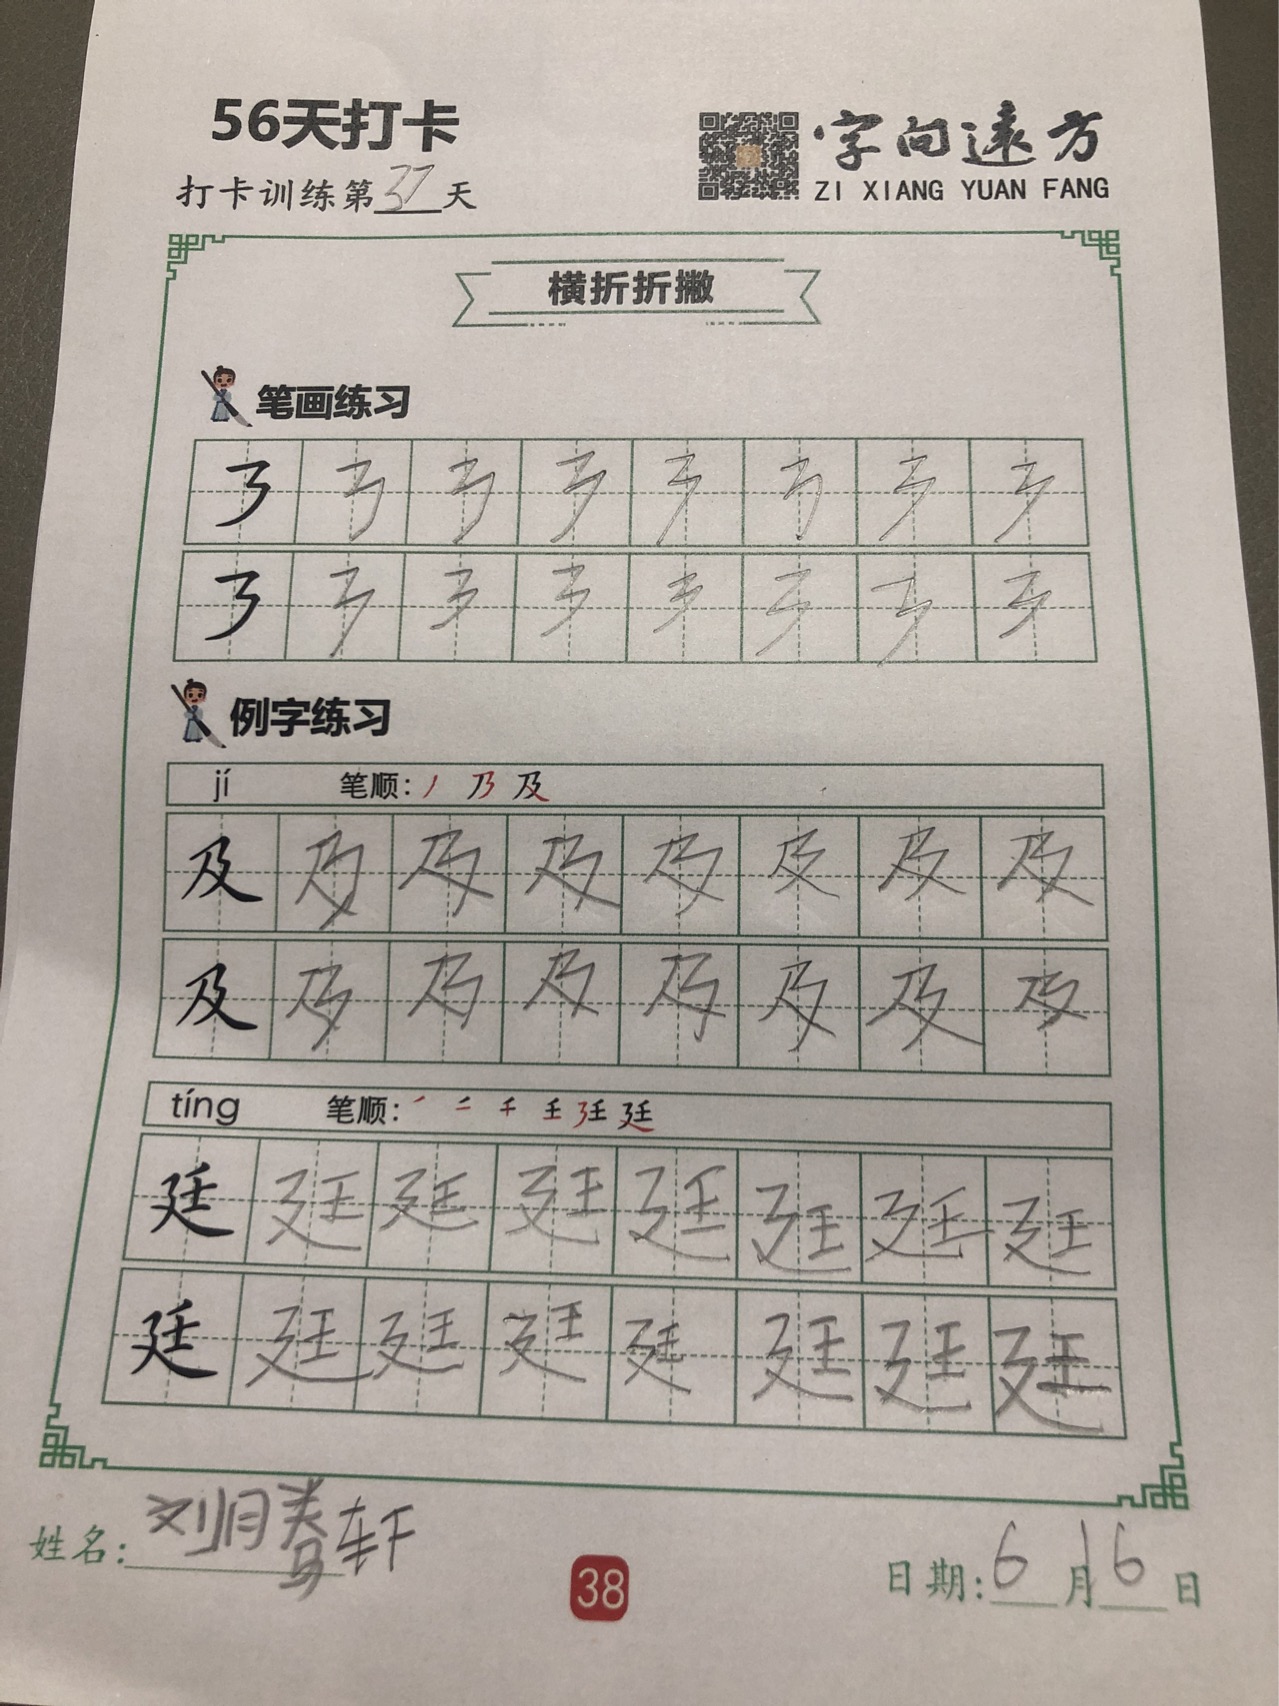 56天打卡
字向遠方
打卡训练第37天
ZI XIANG YUAN FANG
横折折撇
笔画练习
㇋ ㇋ ㇋ ㇋ ㇋ ㇋ ㇋ ㇋
㇋ ㇋ ㇋ ㇋ ㇋ ㇋ ㇋ ㇋
例字练习
jí 笔顺: 丿 乃 及
及 及 及 及 及 及 及 及
及 及 及 及 及 及 及 及
tíng 笔顺:
廷 廷 廷 廷 廷 廷 廷 廷
廷 廷 廷 廷 廷 廷 廷 廷
姓名: 刘腾轩
38
日期: 6月16日